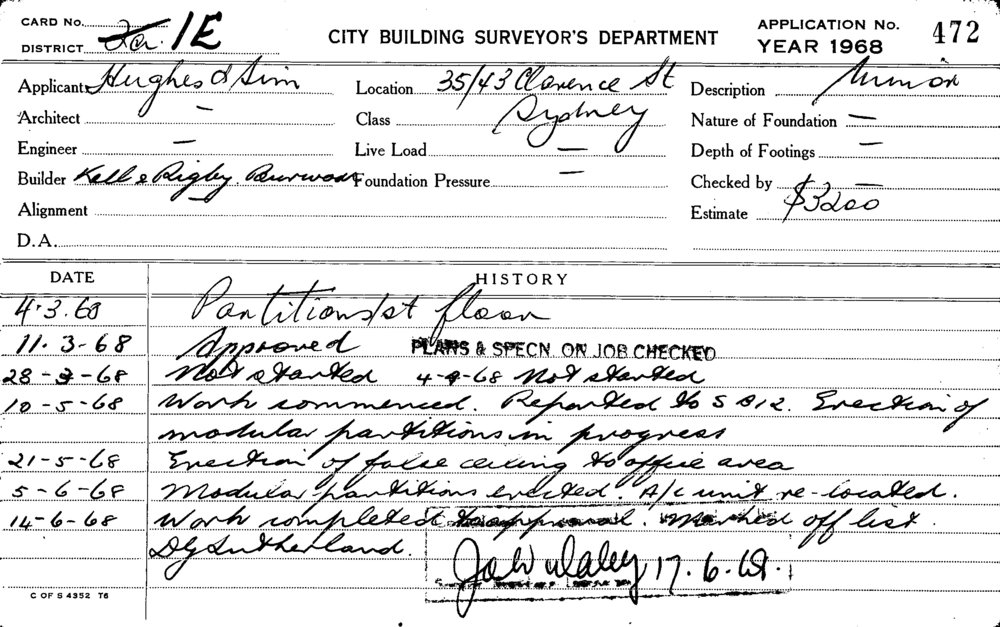 CARD No.
DISTRICT 1E
CITY BUILDING SURVEYOR'S DEPARTMENT
APPLICATION No. 472
YEAR 1968
Applicant Hughes & Sim
Location 35/43 Clarence St
Description Minor
Architect —
Class Sydney
Nature of Foundation —
Engineer —
Live Load —
Depth of Footings —
Builder Kell & Rigby. Burwood
Foundation Pressure —
Checked by —
Alignment
Estimate $3200
D.A.
DATE HISTORY
4.3.68 Partitions 1st floor
11.3-68 Approved PLANS & SPECN ON JOB CHECKED
28-3-68 Not started 4-4-68 Not started
10-5-68 Work commenced. Reported to S B 12. Erection of
modular partitions in progress
21-5-68 Erection of false ceiling to office area
5-6-68 Modular partitions erected. A/c unit re-located.
14-6-68 Work completed to approval. Marked off list.
D G Sutherland.
17.6.68.
C OF S 4352 T6